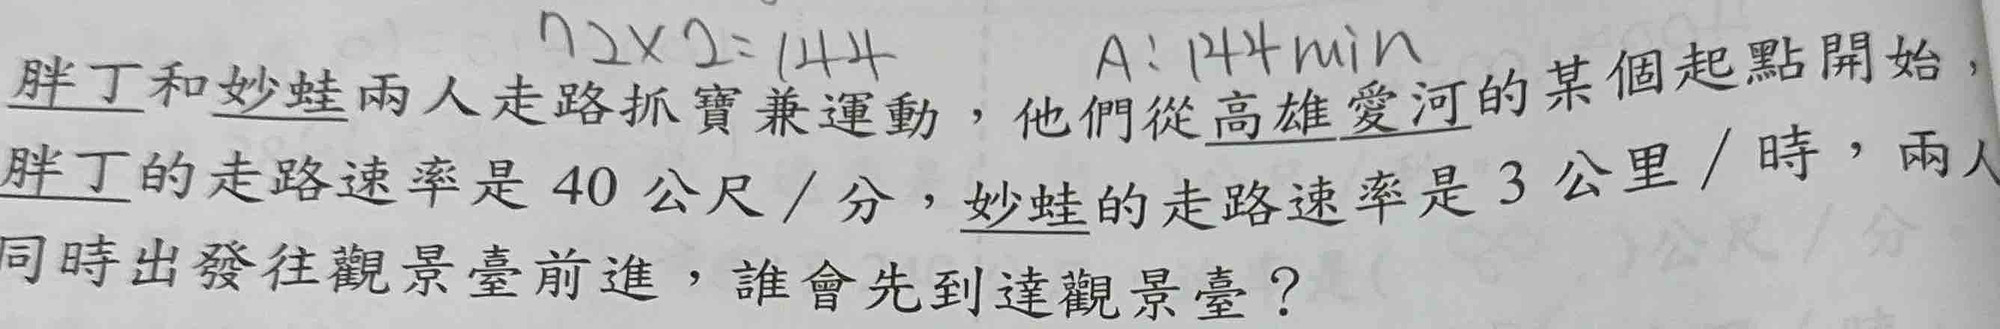 72×2=144 A:144min
胖丁和妙蛙兩人走路抓寶兼運動，他們從高雄愛河的某個起點開始，
胖丁的走路速率是 40 公尺／分，妙蛙的走路速率是 3 公里／時，兩人
同時出發往觀景臺前進，誰會先到達觀景臺？